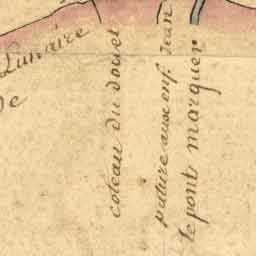 Lunaire
de
coteau du douet
pature aux enf. Jean
le pont marquer